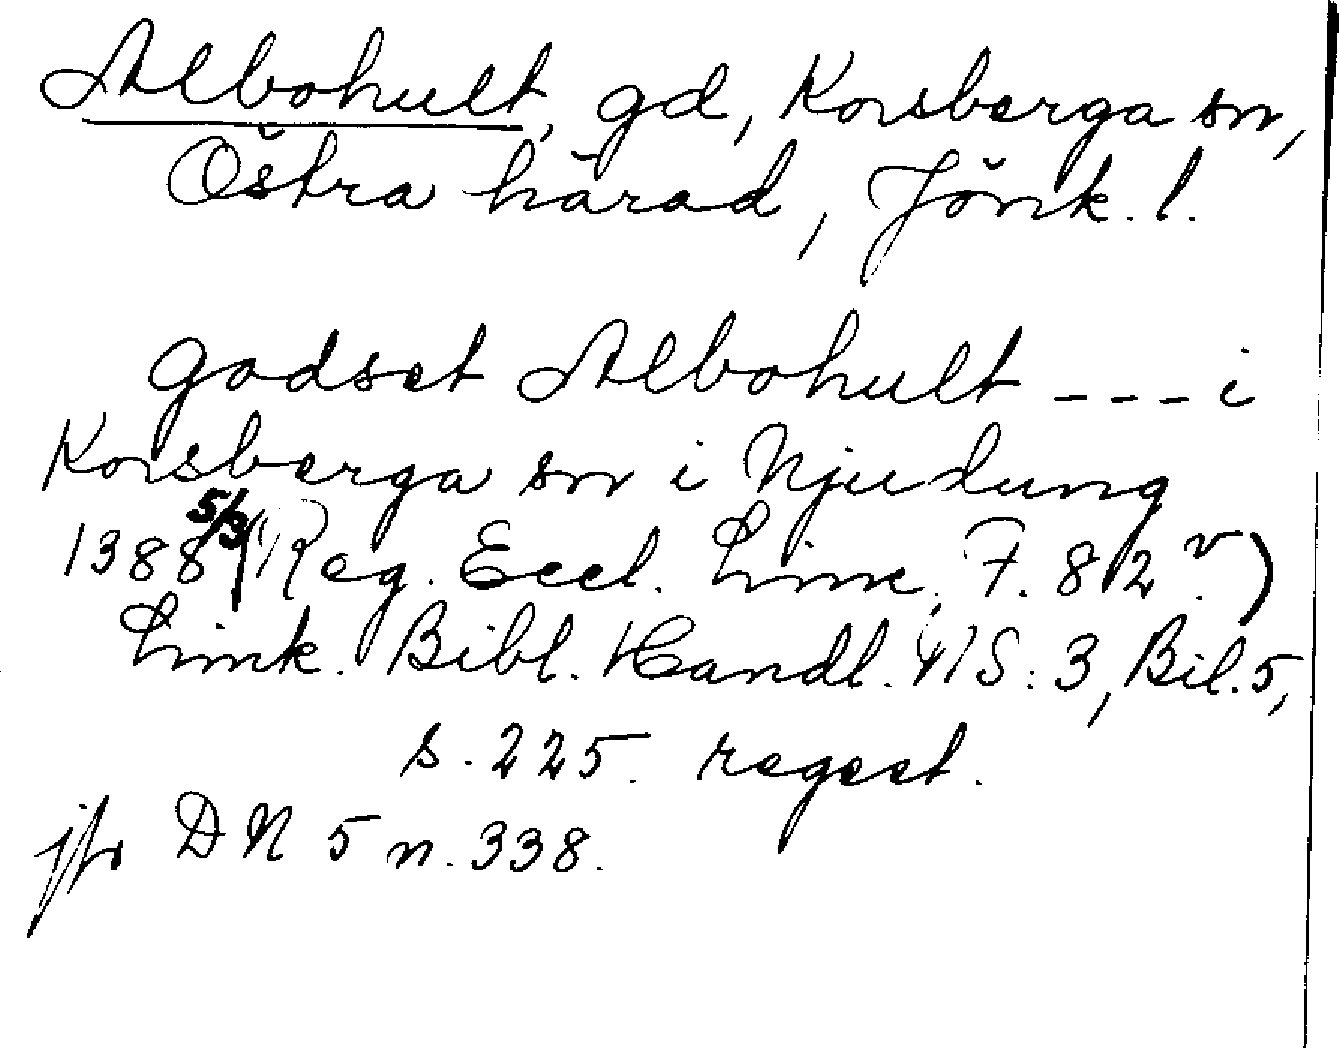 Albohult, gd, Korsberga sn,
Östra härad, Jönk. l.
godset Albohult --- i
Korsberga sn i Njudung
1388 5/3 (Reg. Eccl. Linc, F. 82 v.)
Link. Bibl. Handl. NS: 3, Bil. 5,
s. 225. regest.
jfr DN 5 n. 338.